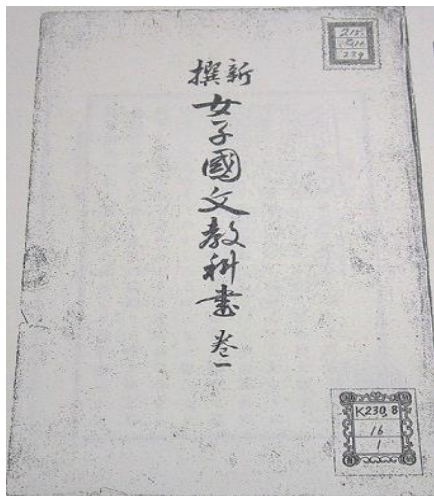 新撰
女子國文教科書 卷一
K230.8
16
1